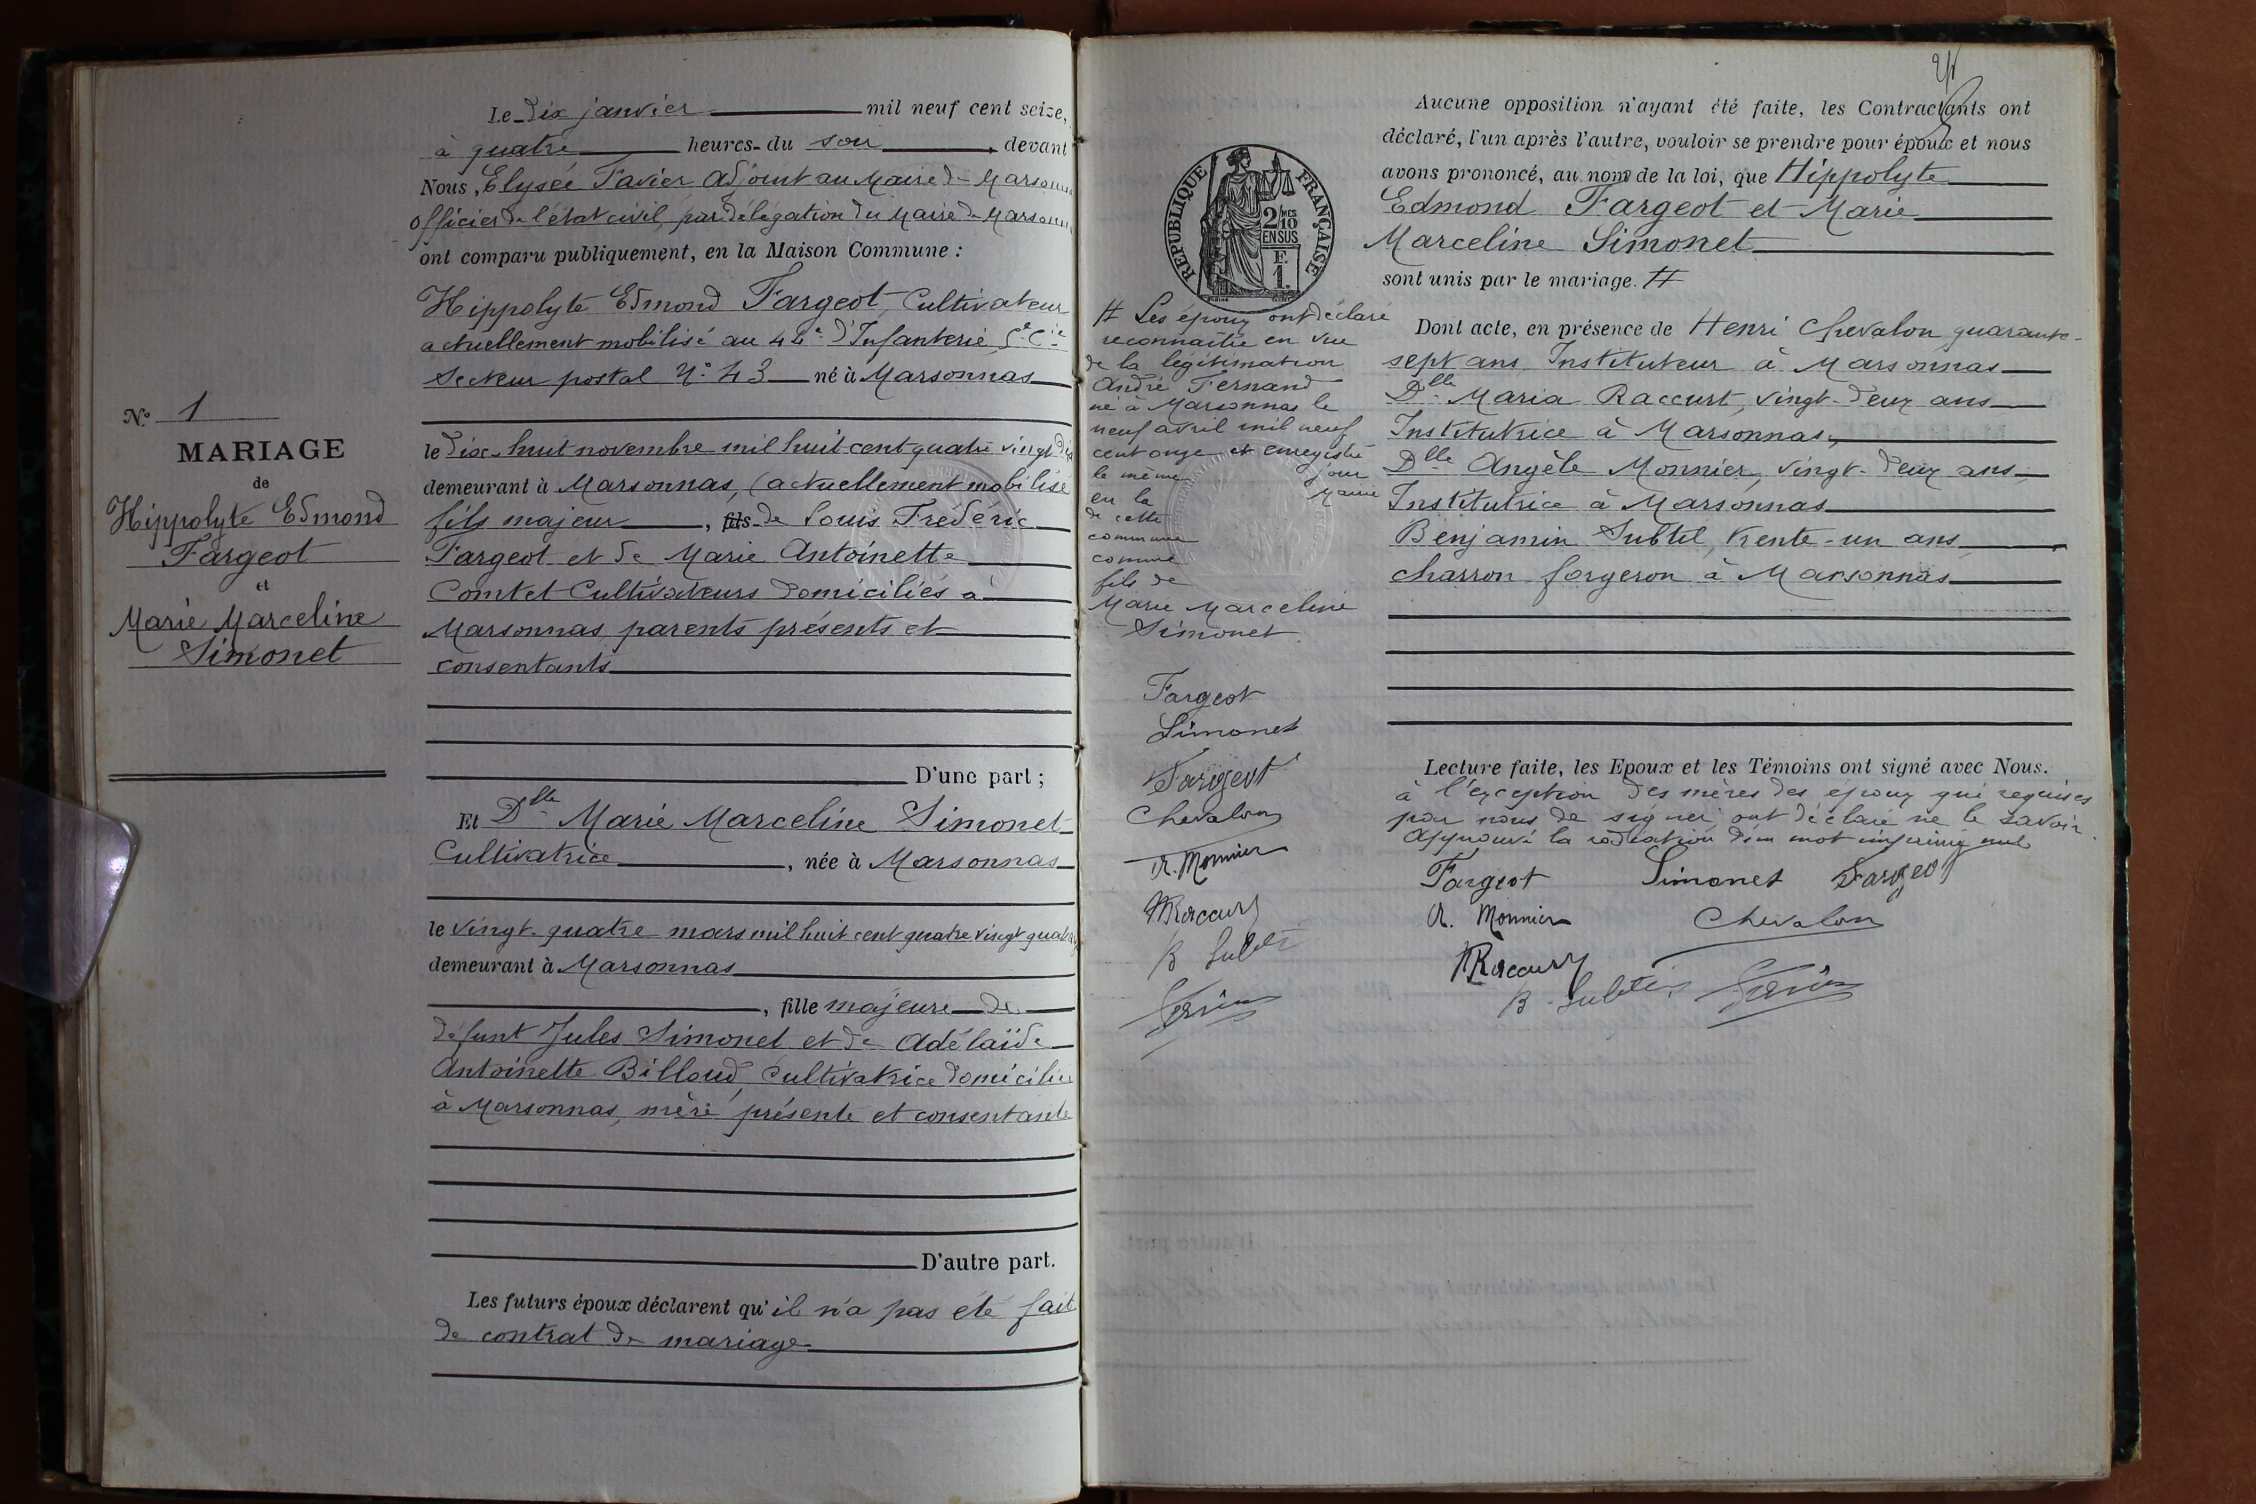 N° 1
MARIAGE
de
Hippolyte Edmond
Fargeot
et
Marie Marceline
Simonet
Le dix janvier mil neuf cent seize,
à quatre heures du soir, devant
Nous, Elysée Favier adjoint au Maire de Marsonnas
officier de l'état civil, par délégation du Maire de Marsonnas
ont comparu publiquement, en la Maison Commune :
Hippolyte Edmond Fargeot, Cultivateur
actuellement mobilisé au 44e d'Infanterie, 5e Cie
Secteur postal N° 43 né à Marsonnas
le dix-huit novembre mil huit cent quatre vingt dix
demeurant à Marsonnas, (actuellement mobilisé
fils majeur, fils de Louis Frédéric
Fargeot et de Marie Antoinette
Comtet Cultivateurs domiciliés à
Marsonnas parents présents et
consentants
D'une part ;
Et Dlle Marie Marceline Simonet
Cultivatrice, née à Marsonnas
le vingt-quatre mars mil huit cent quatre vingt quatorze
demeurant à Marsonnas
, fille majeure de
défunt Jules Simonet et de Adélaïde
Antoinette Billoud, Cultivatrice domiciliée
à Marsonnas, mère présente et consentante
D'autre part.
Les futurs époux déclarent qu'il n'a pas été fait
de contrat de mariage
RÉPUBLIQUE FRANÇAISE
2/10 MES
EN SUS
F.
1.
# Les époux ont déclaré
reconnaître en vue
de la légitimation
André Fernand
né à Marsonnas le
neuf avril mil neuf
cent onze et enregistré
le même jour
en la Mairie
de cette
commune
comme
fils de
Marie Marceline
Simonet
Fargeot
Simonet
Fargeot
Chevalon
A. Monnier
MRaccurt
B Subtil
Favier
Aucune opposition n'ayant été faite, les Contractants ont
déclaré, l'un après l'autre, vouloir se prendre pour époux et nous
avons prononcé, au nom de la loi, que Hippolyte
Edmond Fargeot et Marie
Marceline Simonet
sont unis par le mariage. #
Dont acte, en présence de Henri Chevalon quarante-
sept ans Instituteur à Marsonnas
Dlle Maria Raccurt, vingt-deux ans
Institutrice à Marsonnas,
Dlle Angèle Monnier, vingt-deux ans,
Institutrice à Marsonnas
Benjamin Subtil, trente-un ans,
charron forgeron à Marsonnas
Lecture faite, les Epoux et les Témoins ont signé avec Nous.
à l'exception des mères des époux qui requises
par nous de signer ont déclaré ne le savoir.
Approuvé la radiation d'un mot imprimé nul
Fargeot Simonet Fargeot
A. Monnier Chevalon
MRaccurt
B. Subtil Favier